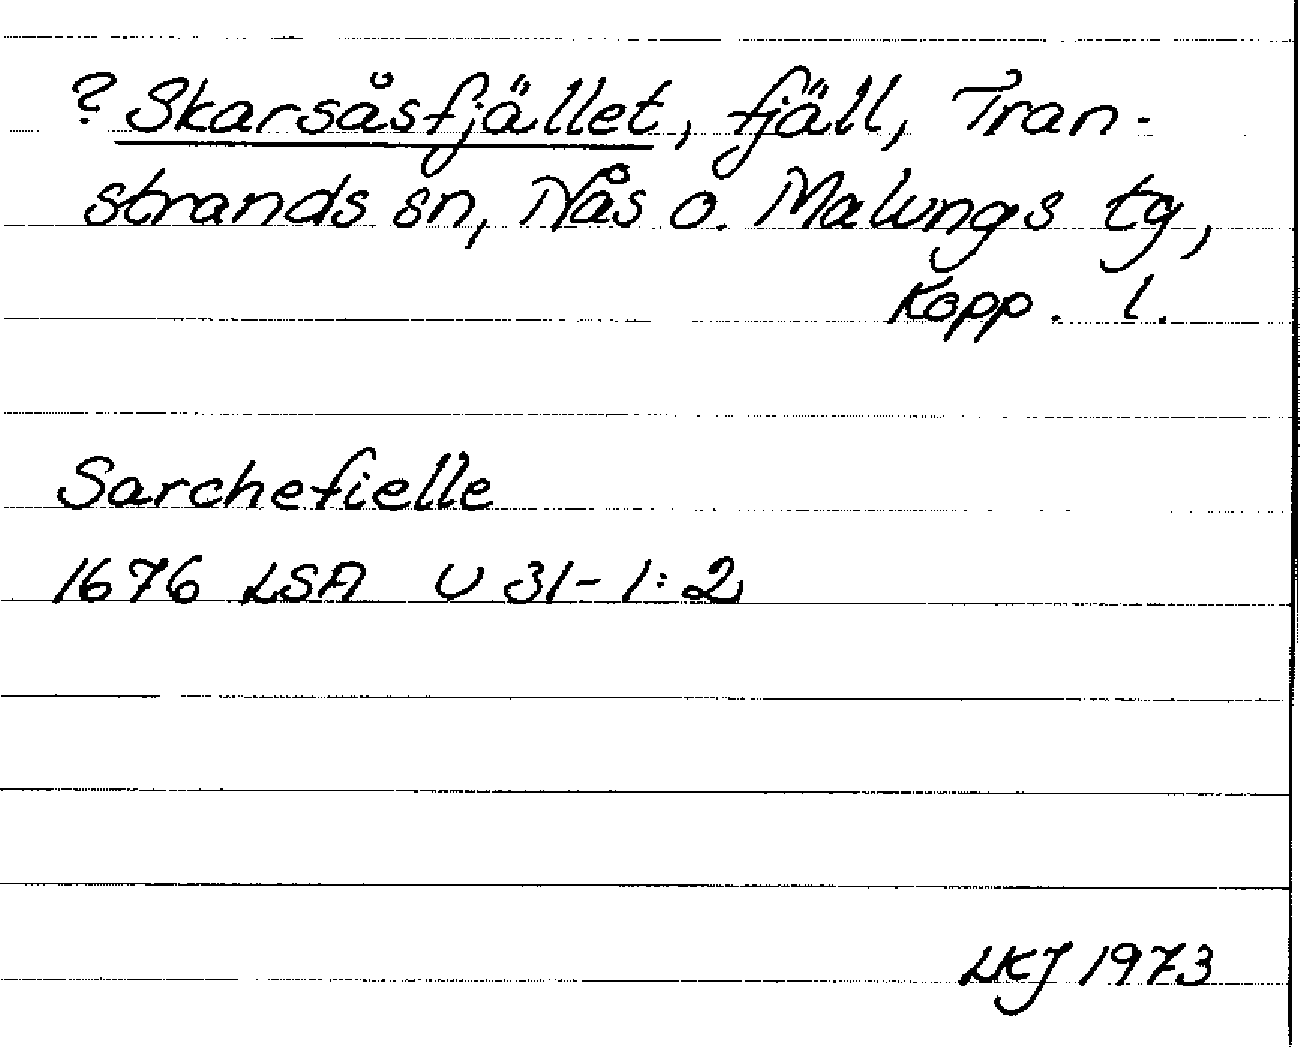 ? Skarsåsfjället, fjäll, Tran-
strands sn, Nås o. Malungs tg,
Kopp. l.
Sarchefielle
1676 LSA U 31-1:2
LKJ 1973